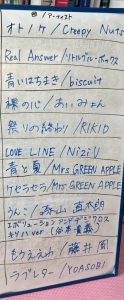 曲/アーティスト
オトノケ/Creepy Nuts
Real Answer/リトルブルーボックス
青いはちまき/biscuit
裸の心/あいみょん
祭りの終わり/RIKID
LOVE LINE/NiziU
青と夏/Mrs GREEN APPLE
ケセラセラ/Mrs GREEN APPLE
うんこ/森山直太朗
エボリューション アンドデジクロス
キリハver (谷本貴義)
もうええわ/藤井風
ラブレター/YOASOBI